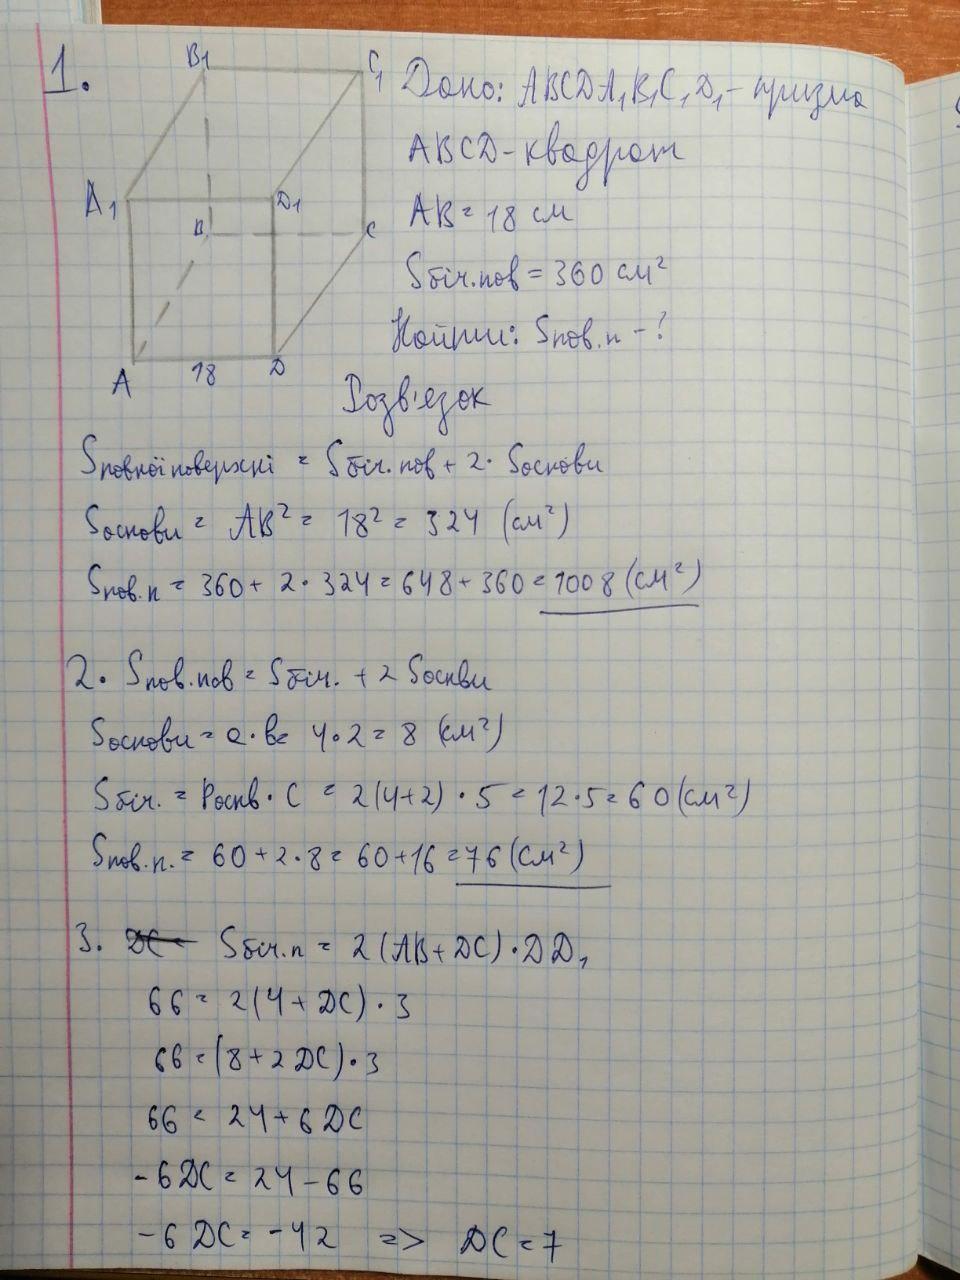 1.
B1
C1
A1
D1
B
C
A
18
D
Дано: ABCDA1B1C1D1 - призма
ABCD - квадрат
AB = 18 см
Sбіч.пов = 360 см²
Найти: Sпов.п - ?
Розв'язок
Sповної поверхні = Sбіч.пов + 2 · Sоснови
Sоснови = AB² = 18² = 324 (см²)
Sпов.п = 360 + 2 · 324 = 648 + 360 = 1008 (см²)
2. Sпов.пов = Sбіч. + 2 Sоснви
Sоснови = a · b = 4 · 2 = 8 (см²)
Sбіч. = Pоснв · C = 2(4+2) · 5 = 12 · 5 = 60 (см²)
Sпов.п. = 60 + 2 · 8 = 60 + 16 = 76 (см²)
3. Sбіч.п = 2 (AB + DC) · DD1
66 = 2(4 + DC) · 3
66 = (8 + 2DC) · 3
66 = 24 + 6DC
-6DC = 24 - 66
-6DC = -42 => DC = 7